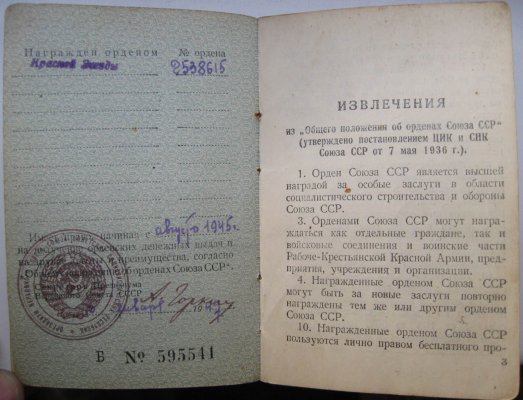 Награжден орденом № ордена
Красной Звезды 2538615
начиная с август 1945 г.
денежной выдачи и
преимущества, согласно
„Общего положения об орденах Союза ССР“.
А. Горкин
января 194
Б № 595541
ИЗВЛЕЧЕНИЯ
из „Общего положения об орденах Союза ССР“
(утверждено постановлением ЦИК и СНК
Союза ССР от 7 мая 1936 г.).
1. Орден Союза ССР является высшей
наградой за особые заслуги в области
социалистического строительства и обороны
Союза ССР.
3. Орденами Союза ССР могут награ-
ждаться как отдельные граждане, так и
войсковые соединения и воинские части
Рабоче-Крестьянской Красной Армии, пред-
приятия, учреждения и организации.
4. Награжденные орденом Союза ССР
могут быть за новые заслуги повторно
награждены тем же или другим орденом
Союза ССР.
10. Награжденные орденом Союза ССР
пользуются лично правом бесплатного про-
3